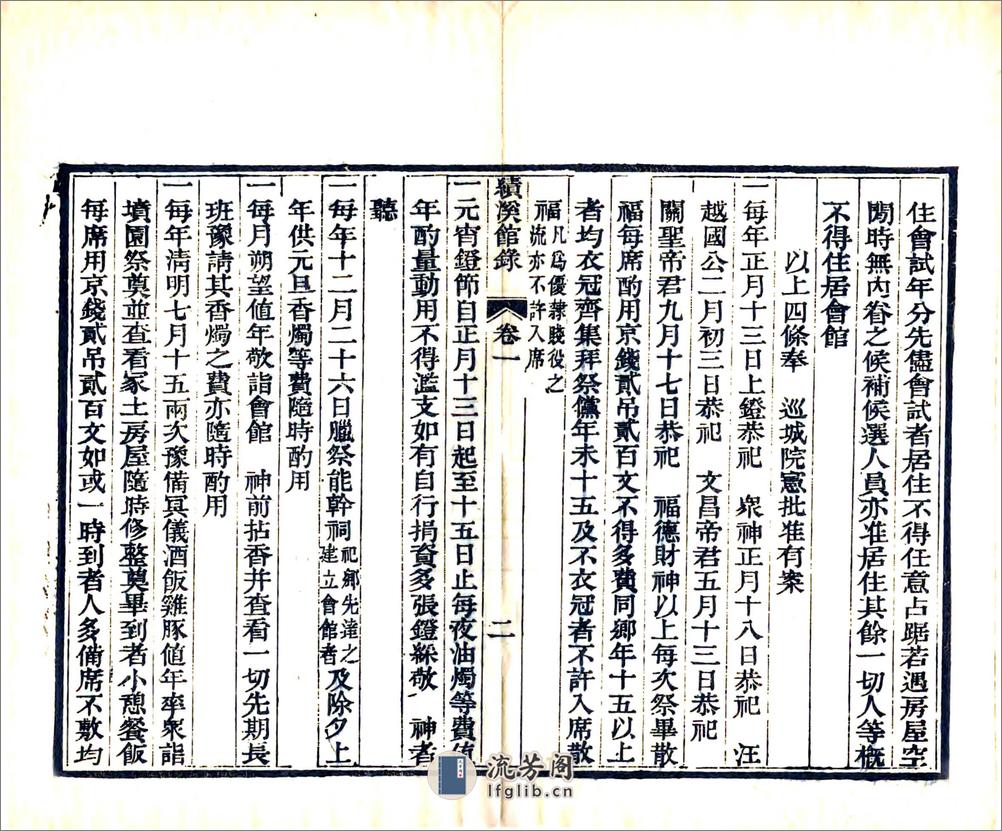 住會試年分先儘會試者居住不得任意占踞若遇房屋空
閒時無內眷之候補候選人員亦准居住其餘一切人等槪
不得住居會館
以上四條奉　巡城院憲批准有案
一每年正月十三日上鐙恭祀　衆神正月十八日恭祀　汪
越國公二月初三日恭祀　文昌帝君五月十三日恭祀
關聖帝君九月十七日恭祀　福德財神以上每次祭畢散
福每席酌用京錢貳吊貳百文不得多費同鄉年十五以上
者均衣冠齊集拜祭儻年未十五及不衣冠者不許入席散
福凡爲優隸賤役之流亦不許入席
績溪館錄　卷一　二
一元宵鐙節自正月十三日起至十五日止每夜油燭等費値
年酌量動用不得濫支如有自行捐資多張鐙綵敬　神者
聽
一每年十二月二十六日臘祭能幹祠祀鄉先達之建立會館者及除夕上
年供元旦香燭等費隨時酌用
一每月朔望值年敬詣會館　神前拈香并查看一切先期長
班豫請其香燭之費亦隨時酌用
一每年淸明七月十五兩次豫備冥儀酒飯雞豚値年率衆詣
墳園祭奠並查看冢土房屋隨時修整奠畢到者小憩餐飯
每席用京錢貳吊貳百文如或一時到者人多備席不敷均
流芳阁
lfglib.cn